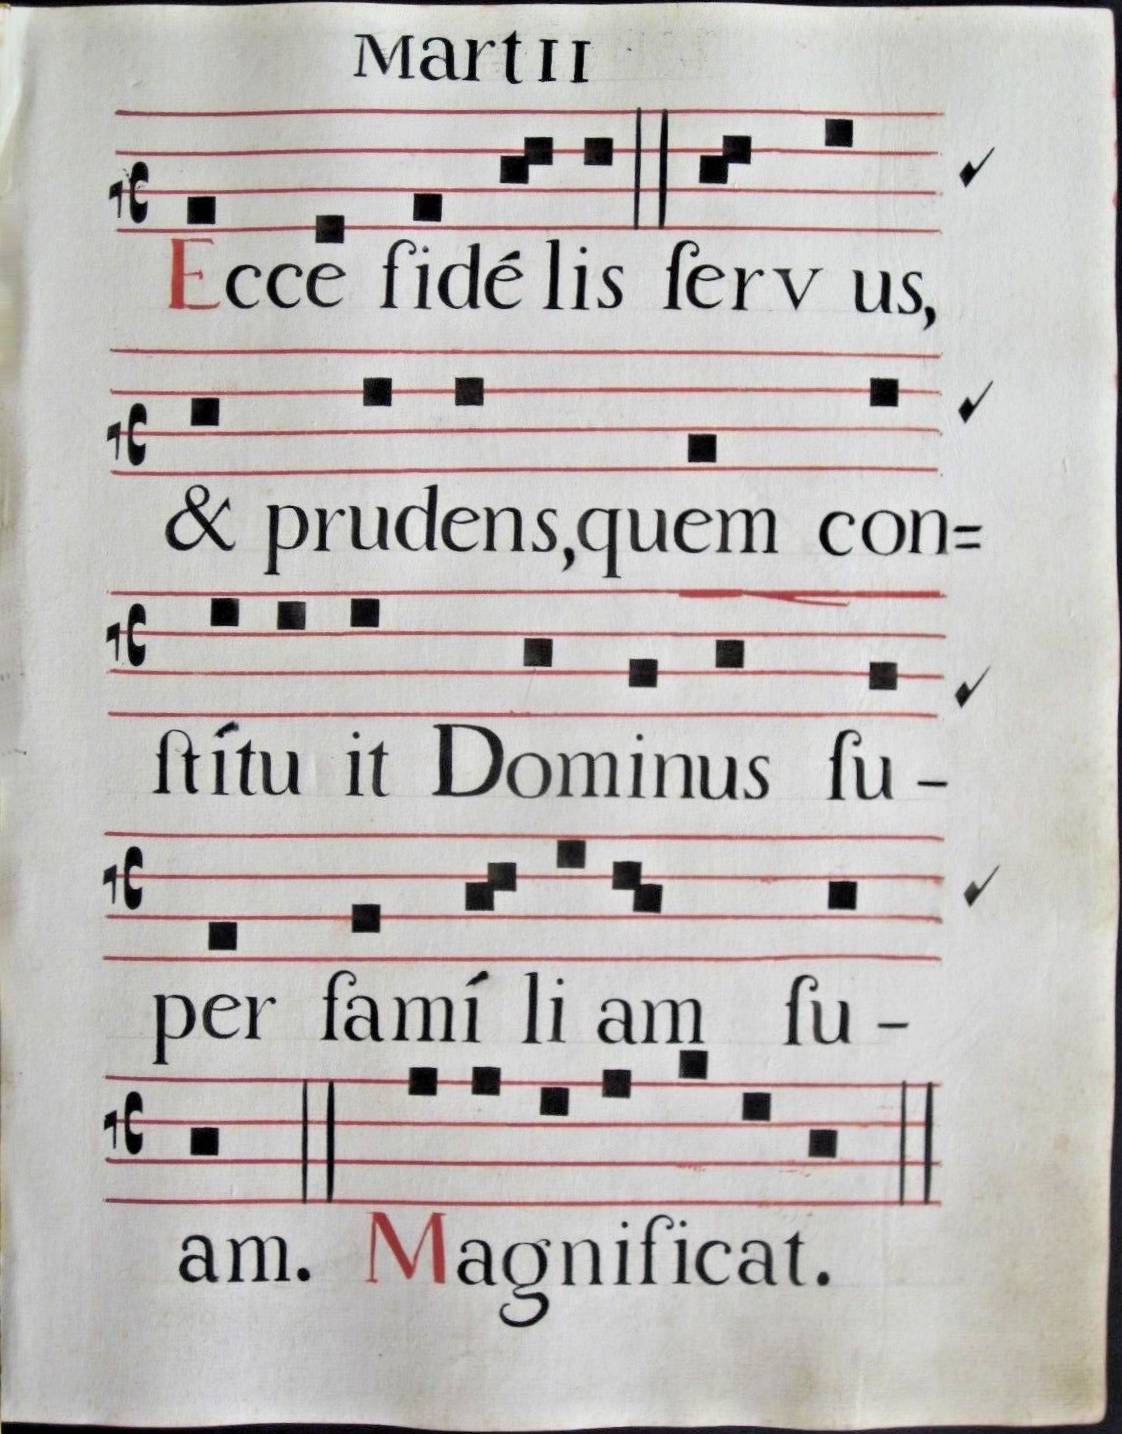 Martii
Ecce fidé lis ſerv us,
& prudens, quem con=
ſtítu it Dominus ſu -
per famí li am ſu -
am. Magnificat.